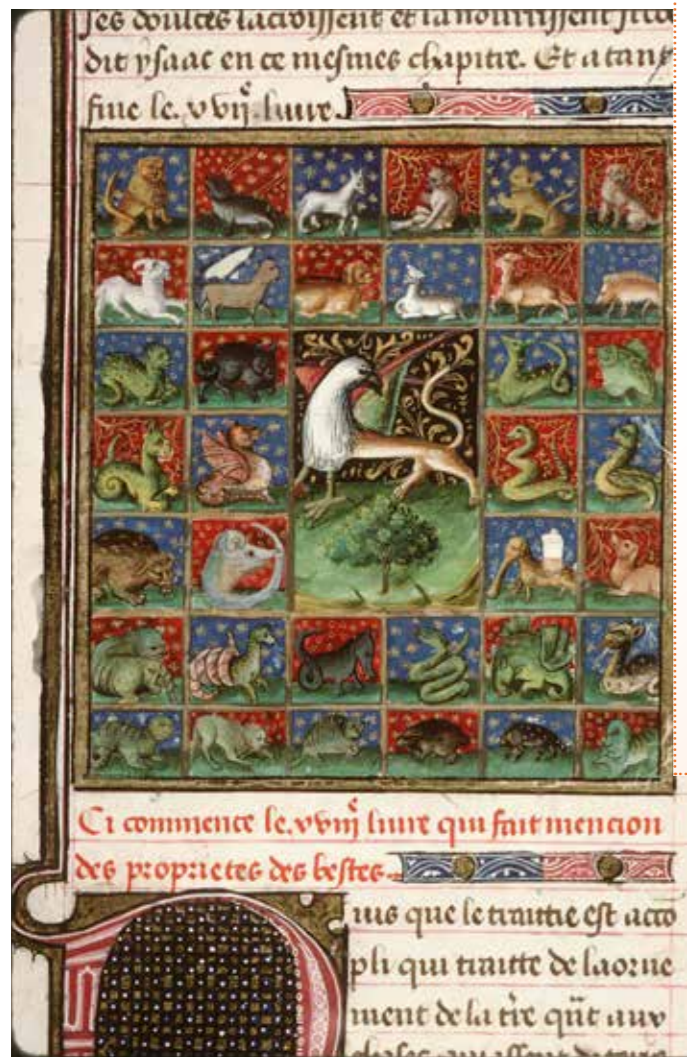 ses doulces lactvissent et la nourrissent sicõ
dit ysaac en ce mesmes chapitre. Et a tant
fine le. xvij.e liure.
Ci commence le. xviij.e liure qui fait mencion
des proprietes des bestes.
uis que le traittie est acco
pli qui traitte de laorne
ment de la tr̃e qũt aux